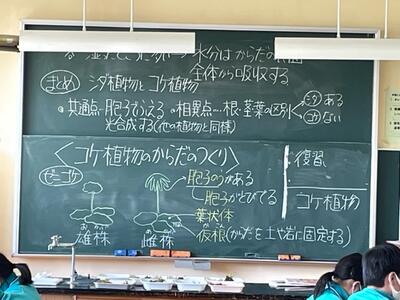 水分はからだの表面
全体から吸収する
まとめ シダ植物とコケ植物
・共通点…胞子でふえる ・相異点…根・茎・葉の区別 シダ ある
光合成する(他の植物と同様) コケ ない
<コケ植物のからだのつくり> 復習
ゼニゴケ 胞子のうがある
胞子がとびでる
コケ植物
葉状体
お め 仮根(からだを土や岩に固定する)
雄株 雌株